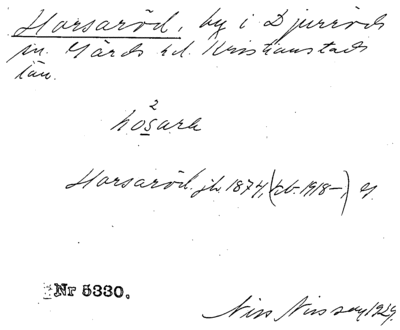 Horsaröd, by i Djurröds
sn. Gärds hd. Kristianstads
län.
2
hosara
Horsaröd. jb. 1874, (kb. 1918–,)
Nr 5330.
Nils Nilsson 1929.